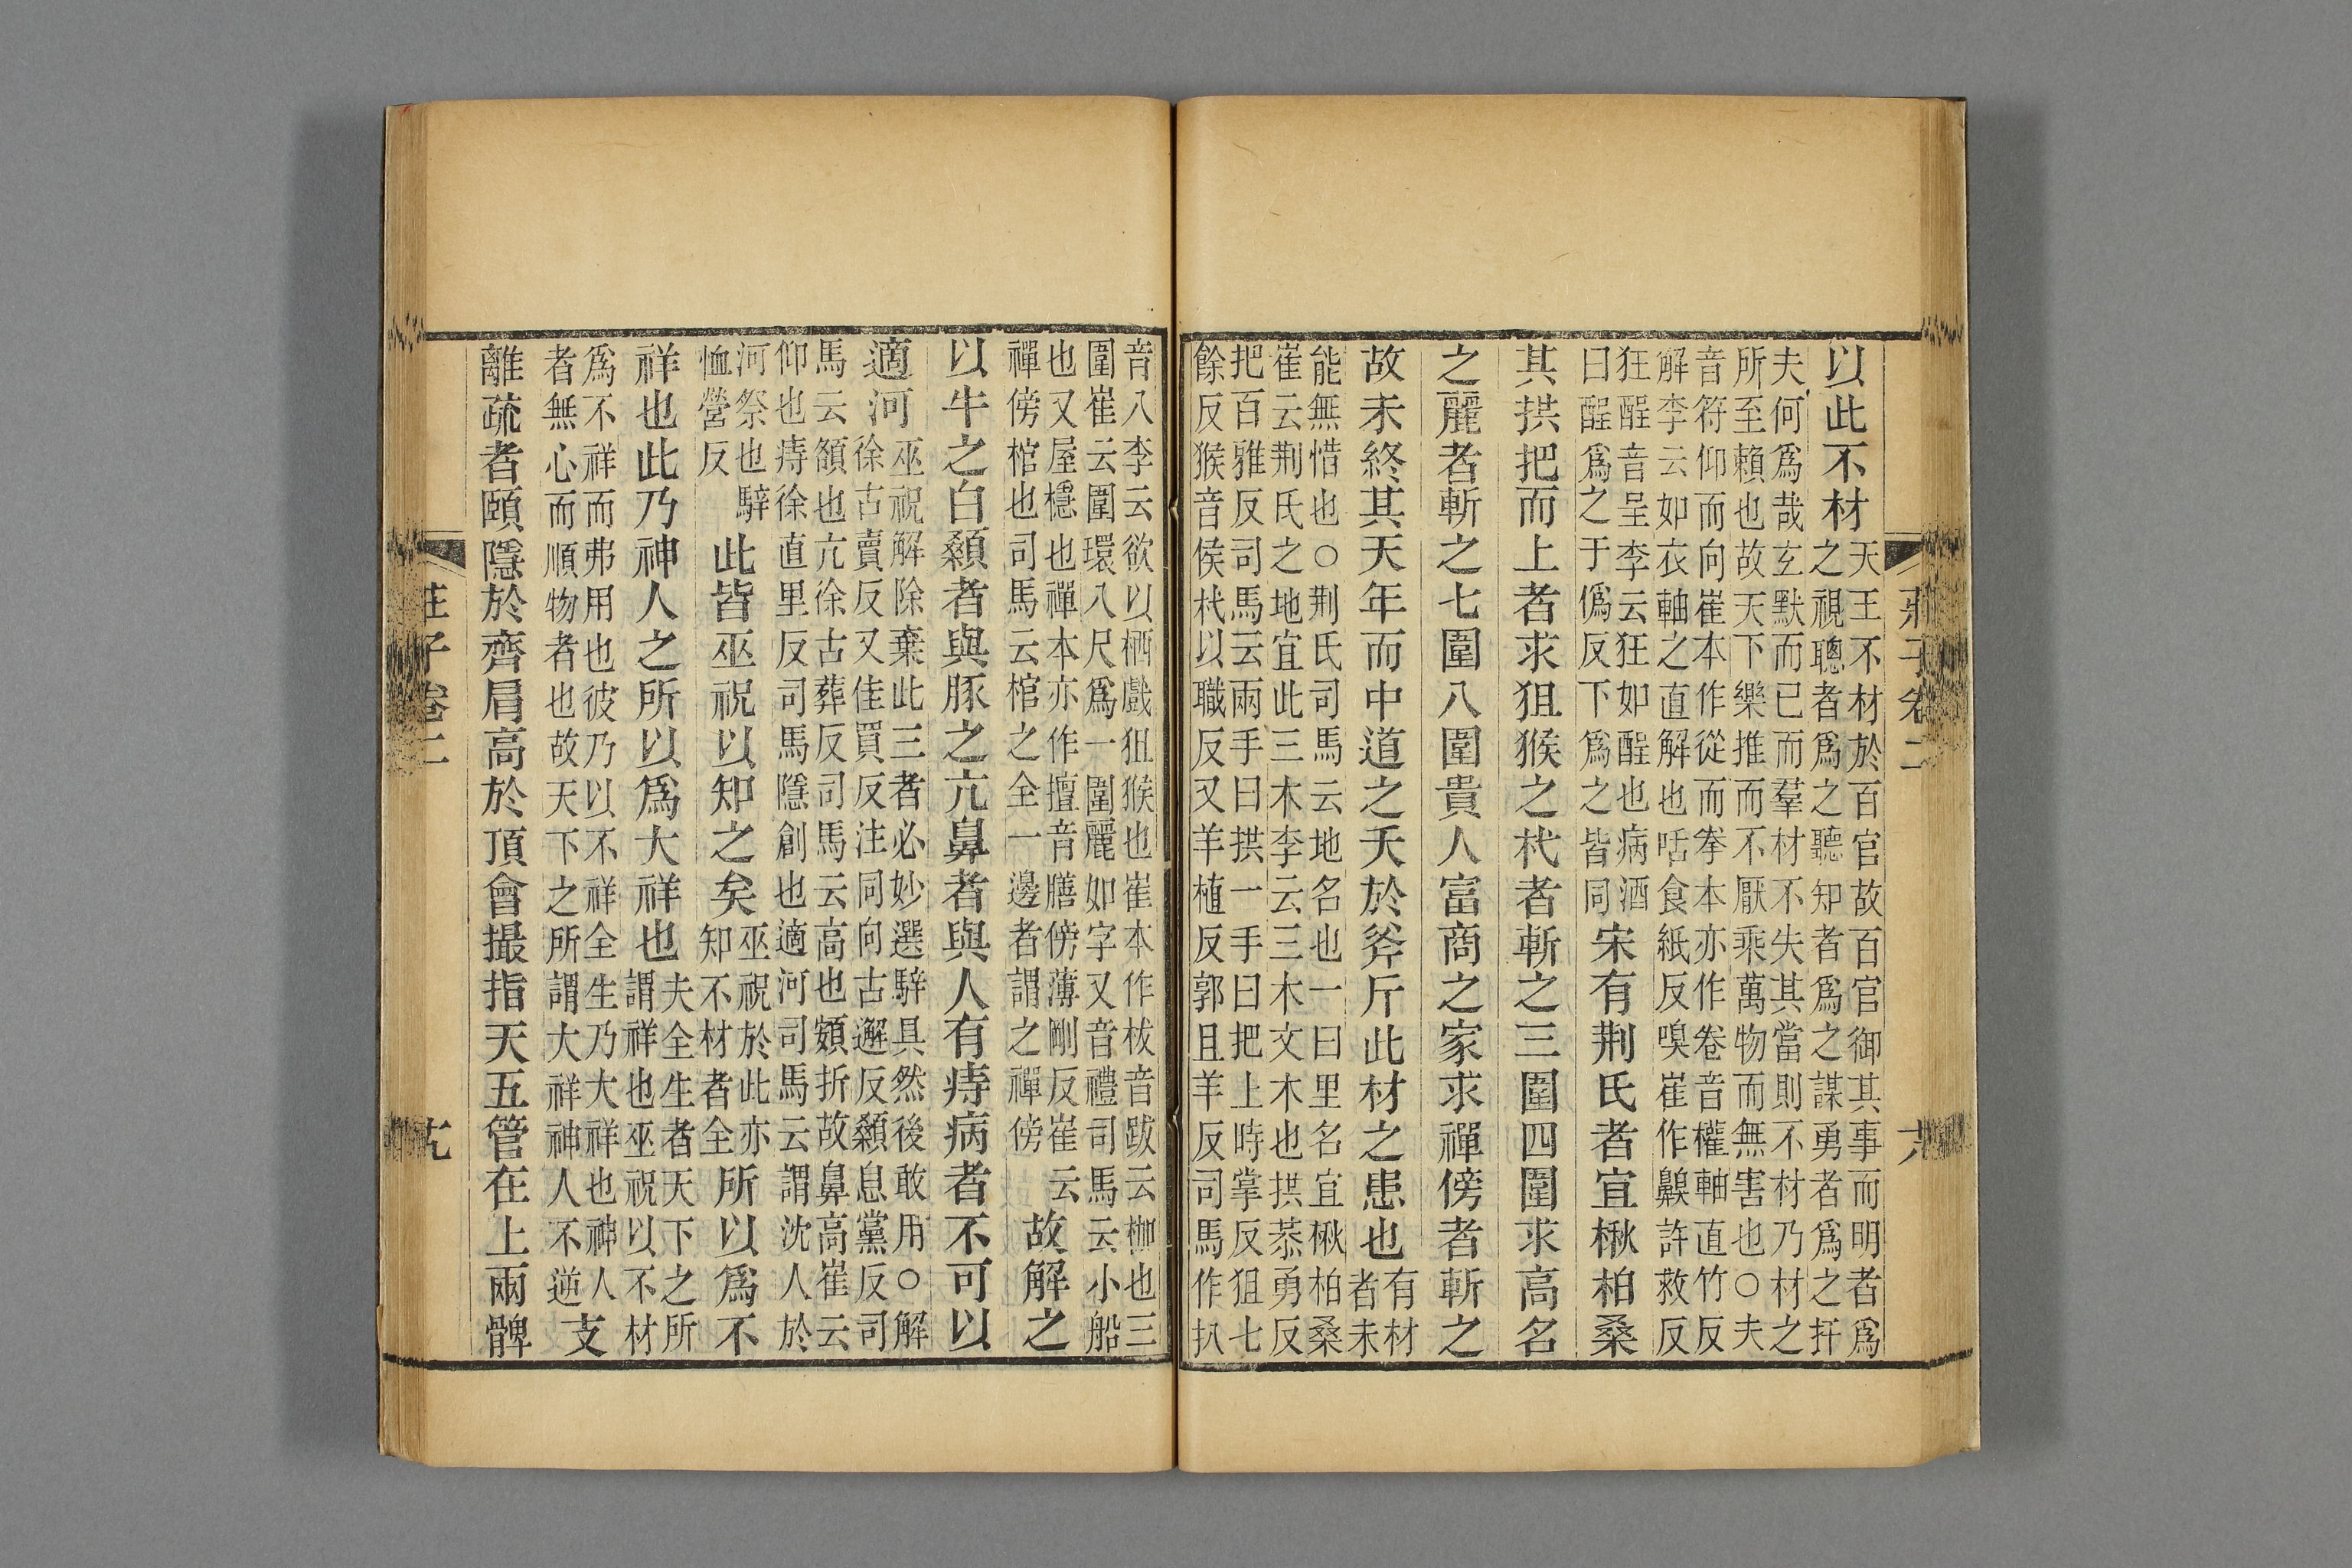 莊子卷二
以此不材天王不材於百官故百官御其事而明者爲
之視聰者爲之聽知者爲之謀勇者爲之扞
夫何爲哉玄默而已而羣材不失其當則不材乃材之
所至賴也故天下樂推而不厭乘萬物而無害也○夫
音符仰而向崔本作從而拳本亦作卷音權軸直竹反
解李云如衣軸之直解也咶食紙反嗅崔作齅許救反
狂酲音呈李云狂如酲也病酒
曰酲爲之于僞反下爲之皆同宋有荆氏者宜楸柏桑
其拱把而上者求狙猴之杙者斬之三圍四圍求高名
之麗者斬之七圍八圍貴人富商之家求禪傍者斬之
故未終其天年而中道之夭於斧斤此材之患也有材
者未
能無惜也○荆氏司馬云地名也一曰里名宜楸柏桑
崔云荆氏之地宜此三木李云三木文木也拱恭勇反
把百雅反司馬云兩手曰拱一手曰把上時掌反狙七
餘反猴音侯杙以職反又羊植反郭且羊反司馬作扒
音八李云欲以栖戲狙猴也崔本作柭音跋云枷也三
圍崔云圍環八尺爲一圍麗如字又音禮司馬云小船
也又屋檼也禪本亦作擅音膳傍薄剛反崔云
禪傍棺也司馬云棺之全一邊者謂之禪傍故解之
以牛之白顙者與豚之亢鼻者與人有痔病者不可以
適河巫祝解除棄此三者必妙選騂具然後敢用○解
徐古賣反又佳買反注同向古邂反顙息黨反司
馬云額也亢徐古葬反司馬云高也頞折故鼻高崔云
仰也痔徐直里反司馬隱創也適河司馬云謂沈人於
河祭也騂
恤營反此皆巫祝以知之矣巫祝於此亦
知不材者全所以爲不
祥也此乃神人之所以爲大祥也夫全生者天下之所
謂祥也巫祝以不材
爲不祥而弗用也彼乃以不祥全生乃大祥也神人
者無心而順物者也故天下之所謂大祥神人不逆支
離疏者頤隱於齊肩高於頂會撮指天五管在上兩髀
莊子卷二